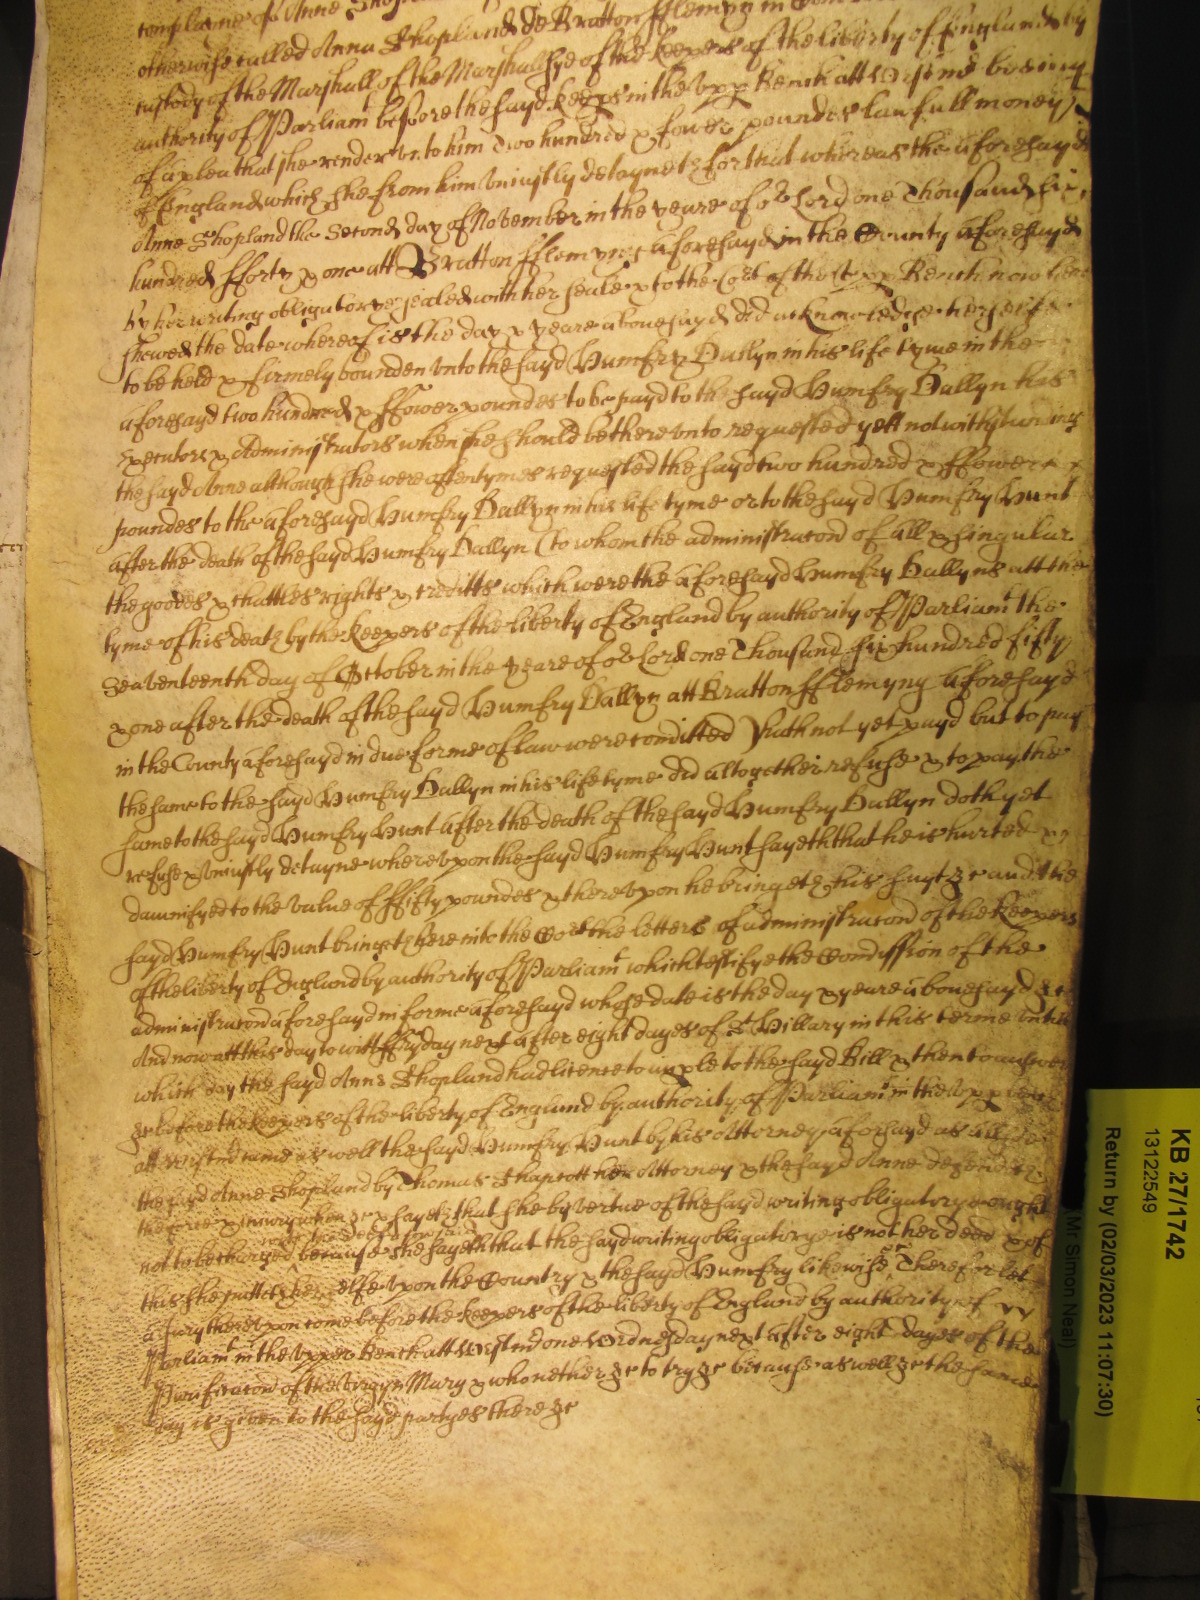 complayne of Anne Shopland
otherwise called Anna Shopland de Bratton fflemyng in
custody of the Marshall of the Marshallsye of the keepers of the liberty of England by
authority of Parliamt before the sayd keeps in the Upp Bench att Westmr
of a plea that she render unto him Two hundred & fower poundes lawfull money
of England which she from him uniustly detayneth for that whereas the aforesayd
Anne Shopland the Second day of November in the yeare of or Lord one Thousand six
hundred fforty & one att Bratton fflemyng aforesayd in the County aforesayd
by her writing obligatorye sealed with her seale & to the Cort of the Upp Bench now here
shewed the date whereof is the day & yeare abovesayd did acknowledge herselfe
to be held & firmely bounden unto the sayd Humfry Dallyn in his life tyme in the
aforesayd two hundred & ffower poundes to be payd to the sayd Humfry Dallyn his
executors & Administrators when she should be there unto requested yett notwithstanding
the sayd Anne although she were oftentymes requested the sayd two hundred & ffower
poundes to the aforesayd Humfry Dallyn in his life tyme or to the sayd Humfry Hunt
after the death of the sayd Humfry Dallyn (to whom the administracon of all & singular
the goodes & chattles rights & creditts which were the aforesayd Humfry Dallyns att the
tyme of his death by the keepers of the liberty of England by authority of Parliamt the
Seaventeenth day of October in the yeare of or Lord one Thousand six hundred fifty
& one after the death of the sayd Humfry Dallyn att Bratton fflemyng aforesayd
in the County aforesayd in due forme of law were comitted) hath not yet payd but to pay
the same to the sayd Humfry Dallyn in his life tyme did altogether refuse & to pay the
same to the sayd Humfry Hunt after the death of the sayd Humfry Dallyn doth yet
refuse & uniustly detayne whereupon the sayd Humfry Hunt sayeth that he is hurted
damnifyed to the value of ffifty poundes & thereupon he bringeth his suyt &c and the
sayd Humfry Hunt bringeth here into the Cort the letters of administracon of the keepers
of the liberty of England by authority of Parliamt which testifye the Comission of the
administracon aforesayd in forme aforesayd whose date is the day & yeare abovesayd &c
And now att this day to witt ffryday next after eight dayes of St Hillary in this terme untill
which day the sayd Anne Shopland had licence to imple to the sayd Bill & then to answer
&c before the keepers of the liberty of England by authority of Parliamt in the Upp bench
att Westmr came as well the sayd Humfry Hunt by his Attorney aforsayd as
the sayd Anne Shopland by Thomas Shapcott her Attorney & the sayd Anne defendeth
the force & iniury when &c & sayeth that she by vertue of the sayd writing obligatorye ought
not to be charged because she sayeth that the sayd writing obligatorye is not her deed & of
this she putteth her selfe upon the Country & the sayd Humfry likewise &c Therefor let
a Jury thereupon come before the keepers of the liberty of England by authority of
Parliamt in the Upper Bench att Westmr on Wednesday next after eight dayes of the
Purificacon of the Virgyn Mary & who nether &c to try &c because as well &c the same
day is given to the sayd partyes there &c
KB 27/1742
13122549
Return by (02/03/2023 11:07:30)
Mr Simon Neal)